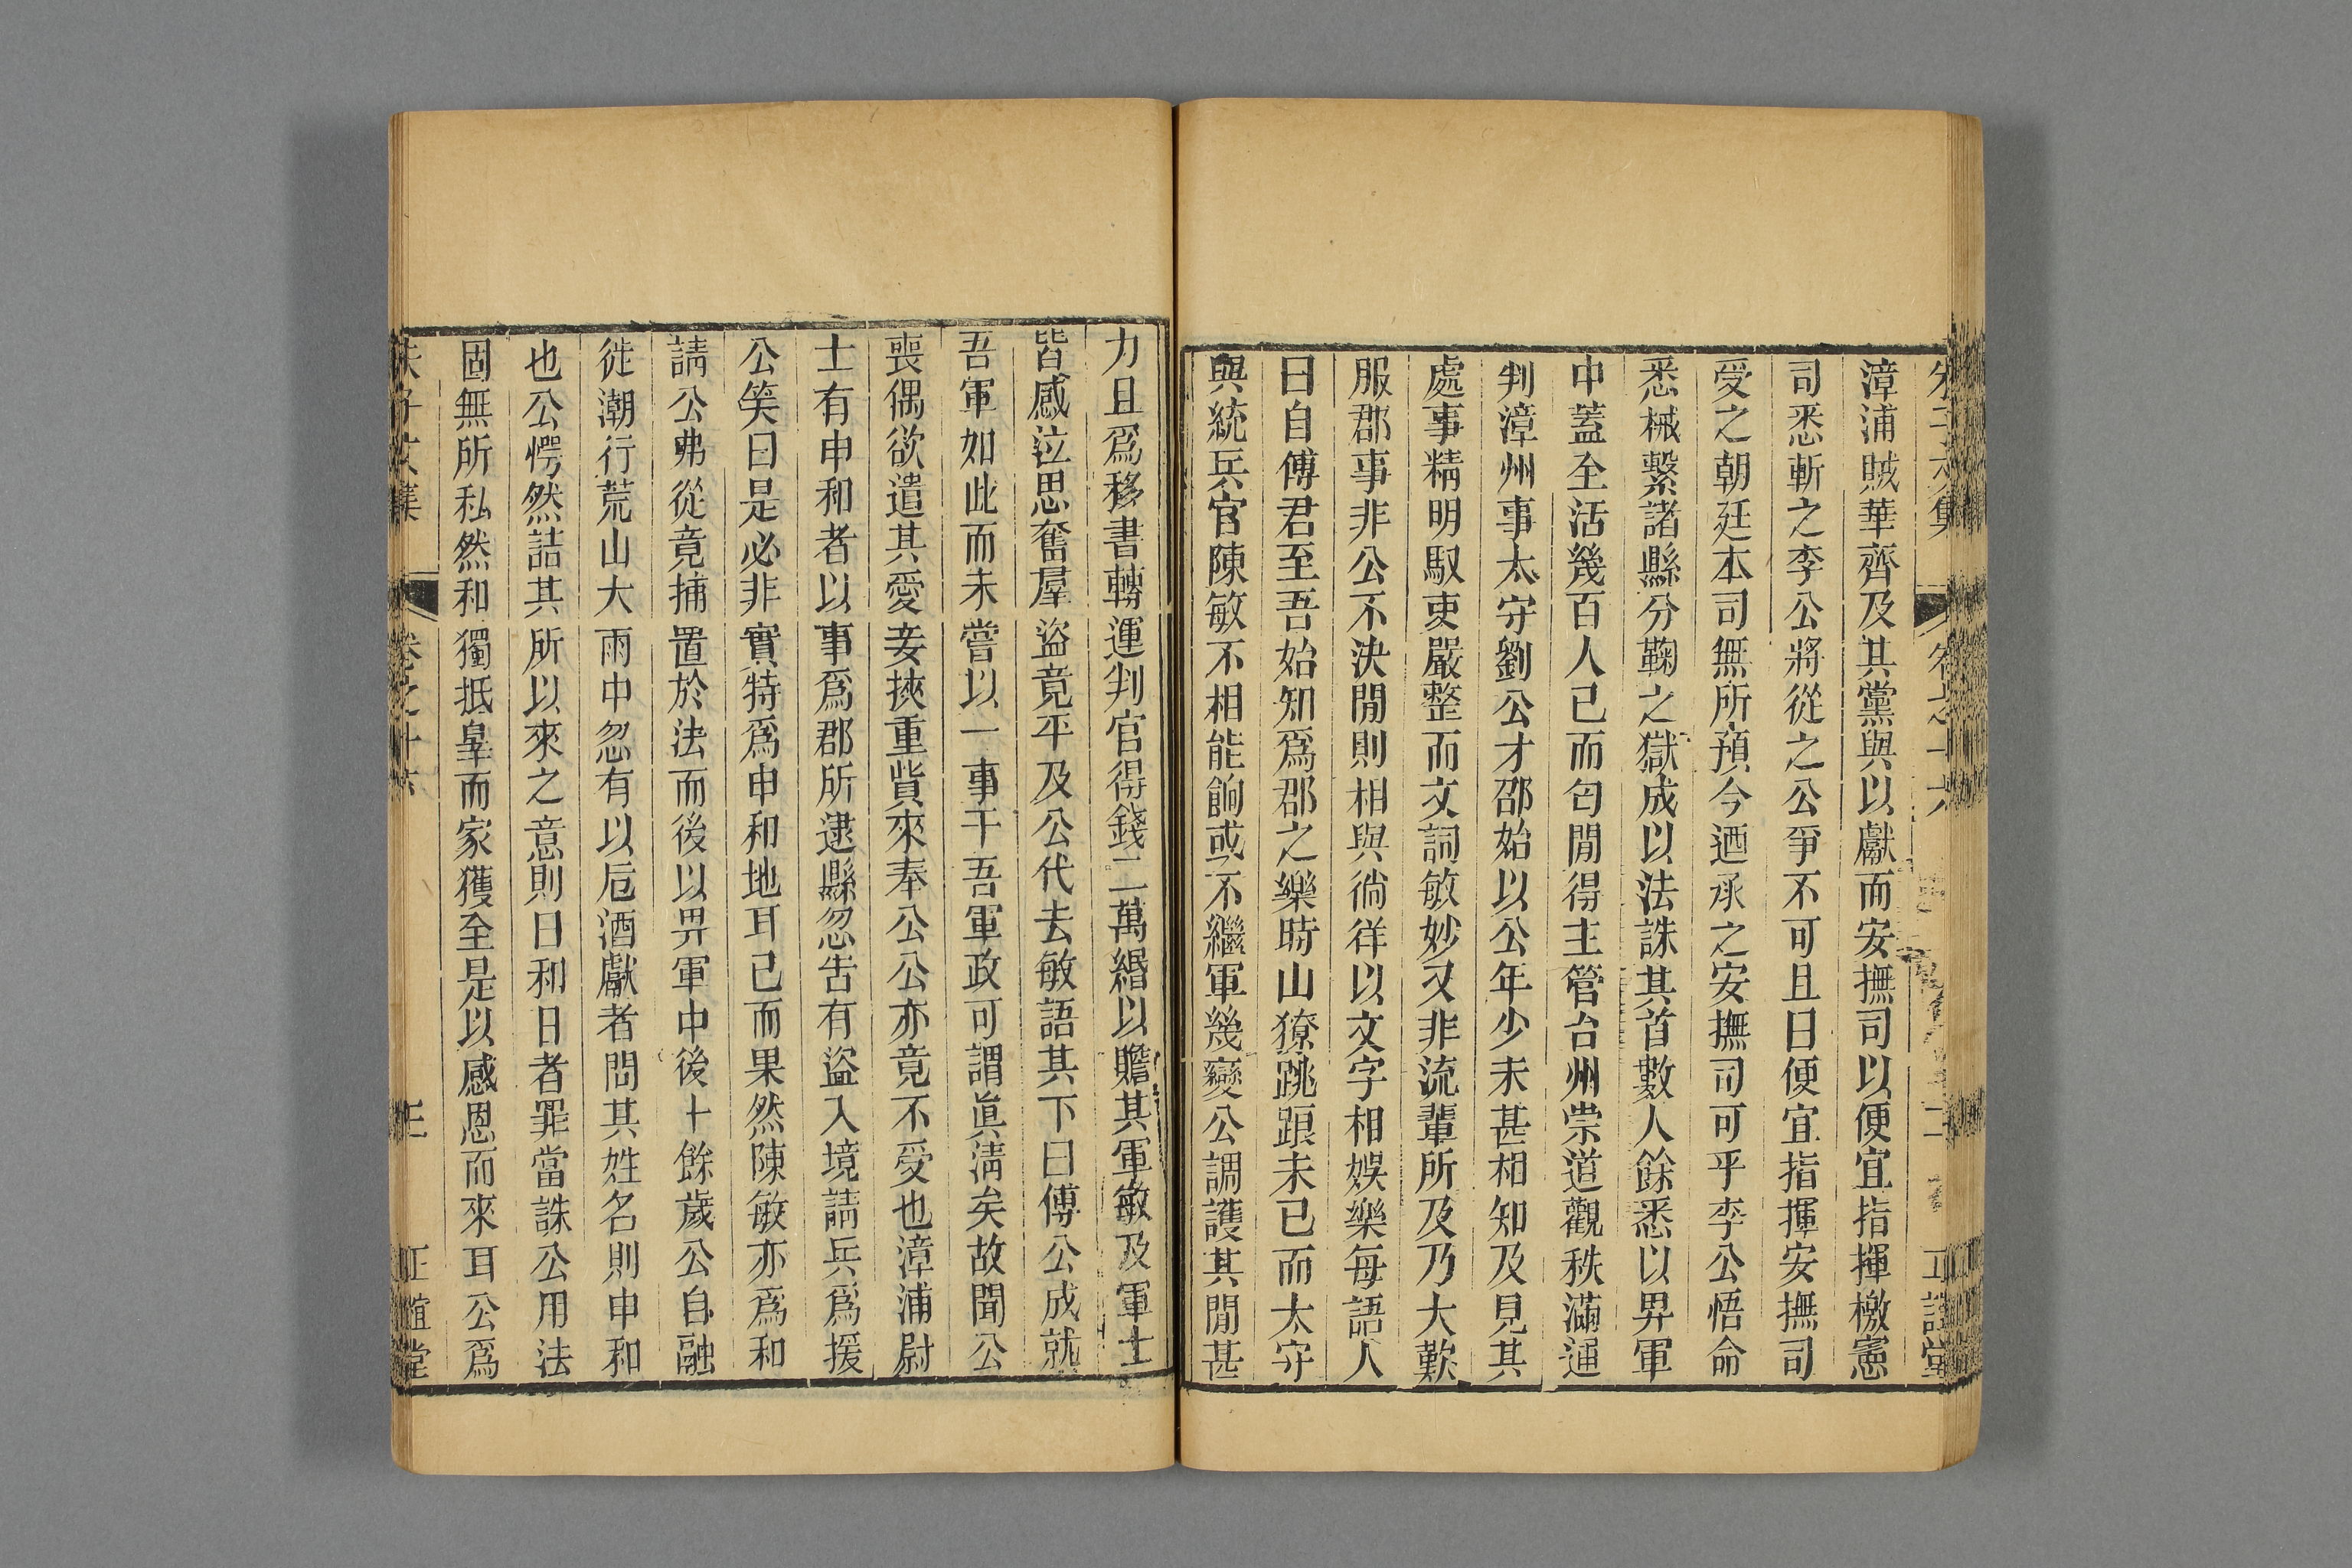 漳浦賊華齊及其黨與以獻而安撫司以便宜指揮檄憲
司悉斬之李公將從之公爭不可且曰便宜指揮安撫司
受之朝廷本司無所預今迺承之安撫司可乎李公悟命
悉械繫諸縣分鞠之獄成以法誅其首數人餘悉以畀軍
中蓋全活幾百人已而匄閒得主管台州崇道觀秩滿通
判漳州事太守劉公才邵始以公年少未甚相知及見其
處事精明馭吏嚴整而文詞敏妙又非流輩所及乃大歎
服郡事非公不決閒則相與徜徉以文字相娛樂每語人
曰自傅君至吾始知爲郡之樂時山獠跳踉未已而太守
與統兵官陳敏不相能餉或不繼軍幾變公調護其閒甚
力且爲移書轉運判官得錢二萬緡以贍其軍敏及軍士
皆感泣思奮羣盜竟平及公代去敏語其下曰傅公成就
吾軍如此而未嘗以一事干吾軍政可謂眞淸矣故聞公
喪偶欲遣其愛妾挾重貲來奉公公亦竟不受也漳浦尉
士有申和者以事爲郡所逮縣忽吿有盜入境請兵爲援
公笑曰是必非實特爲申和地耳已而果然陳敏亦爲和
請公弗從竟捕置於法而後以畀軍中後十餘歲公自融
徙潮行荒山大雨中忽有以卮酒獻者問其姓名則申和
也公愕然詰其所以來之意則曰和日者罪當誅公用法
固無所私然和獨抵辠而家獲全是以感恩而來耳公爲
朱子文集 卷之十六 正誼堂